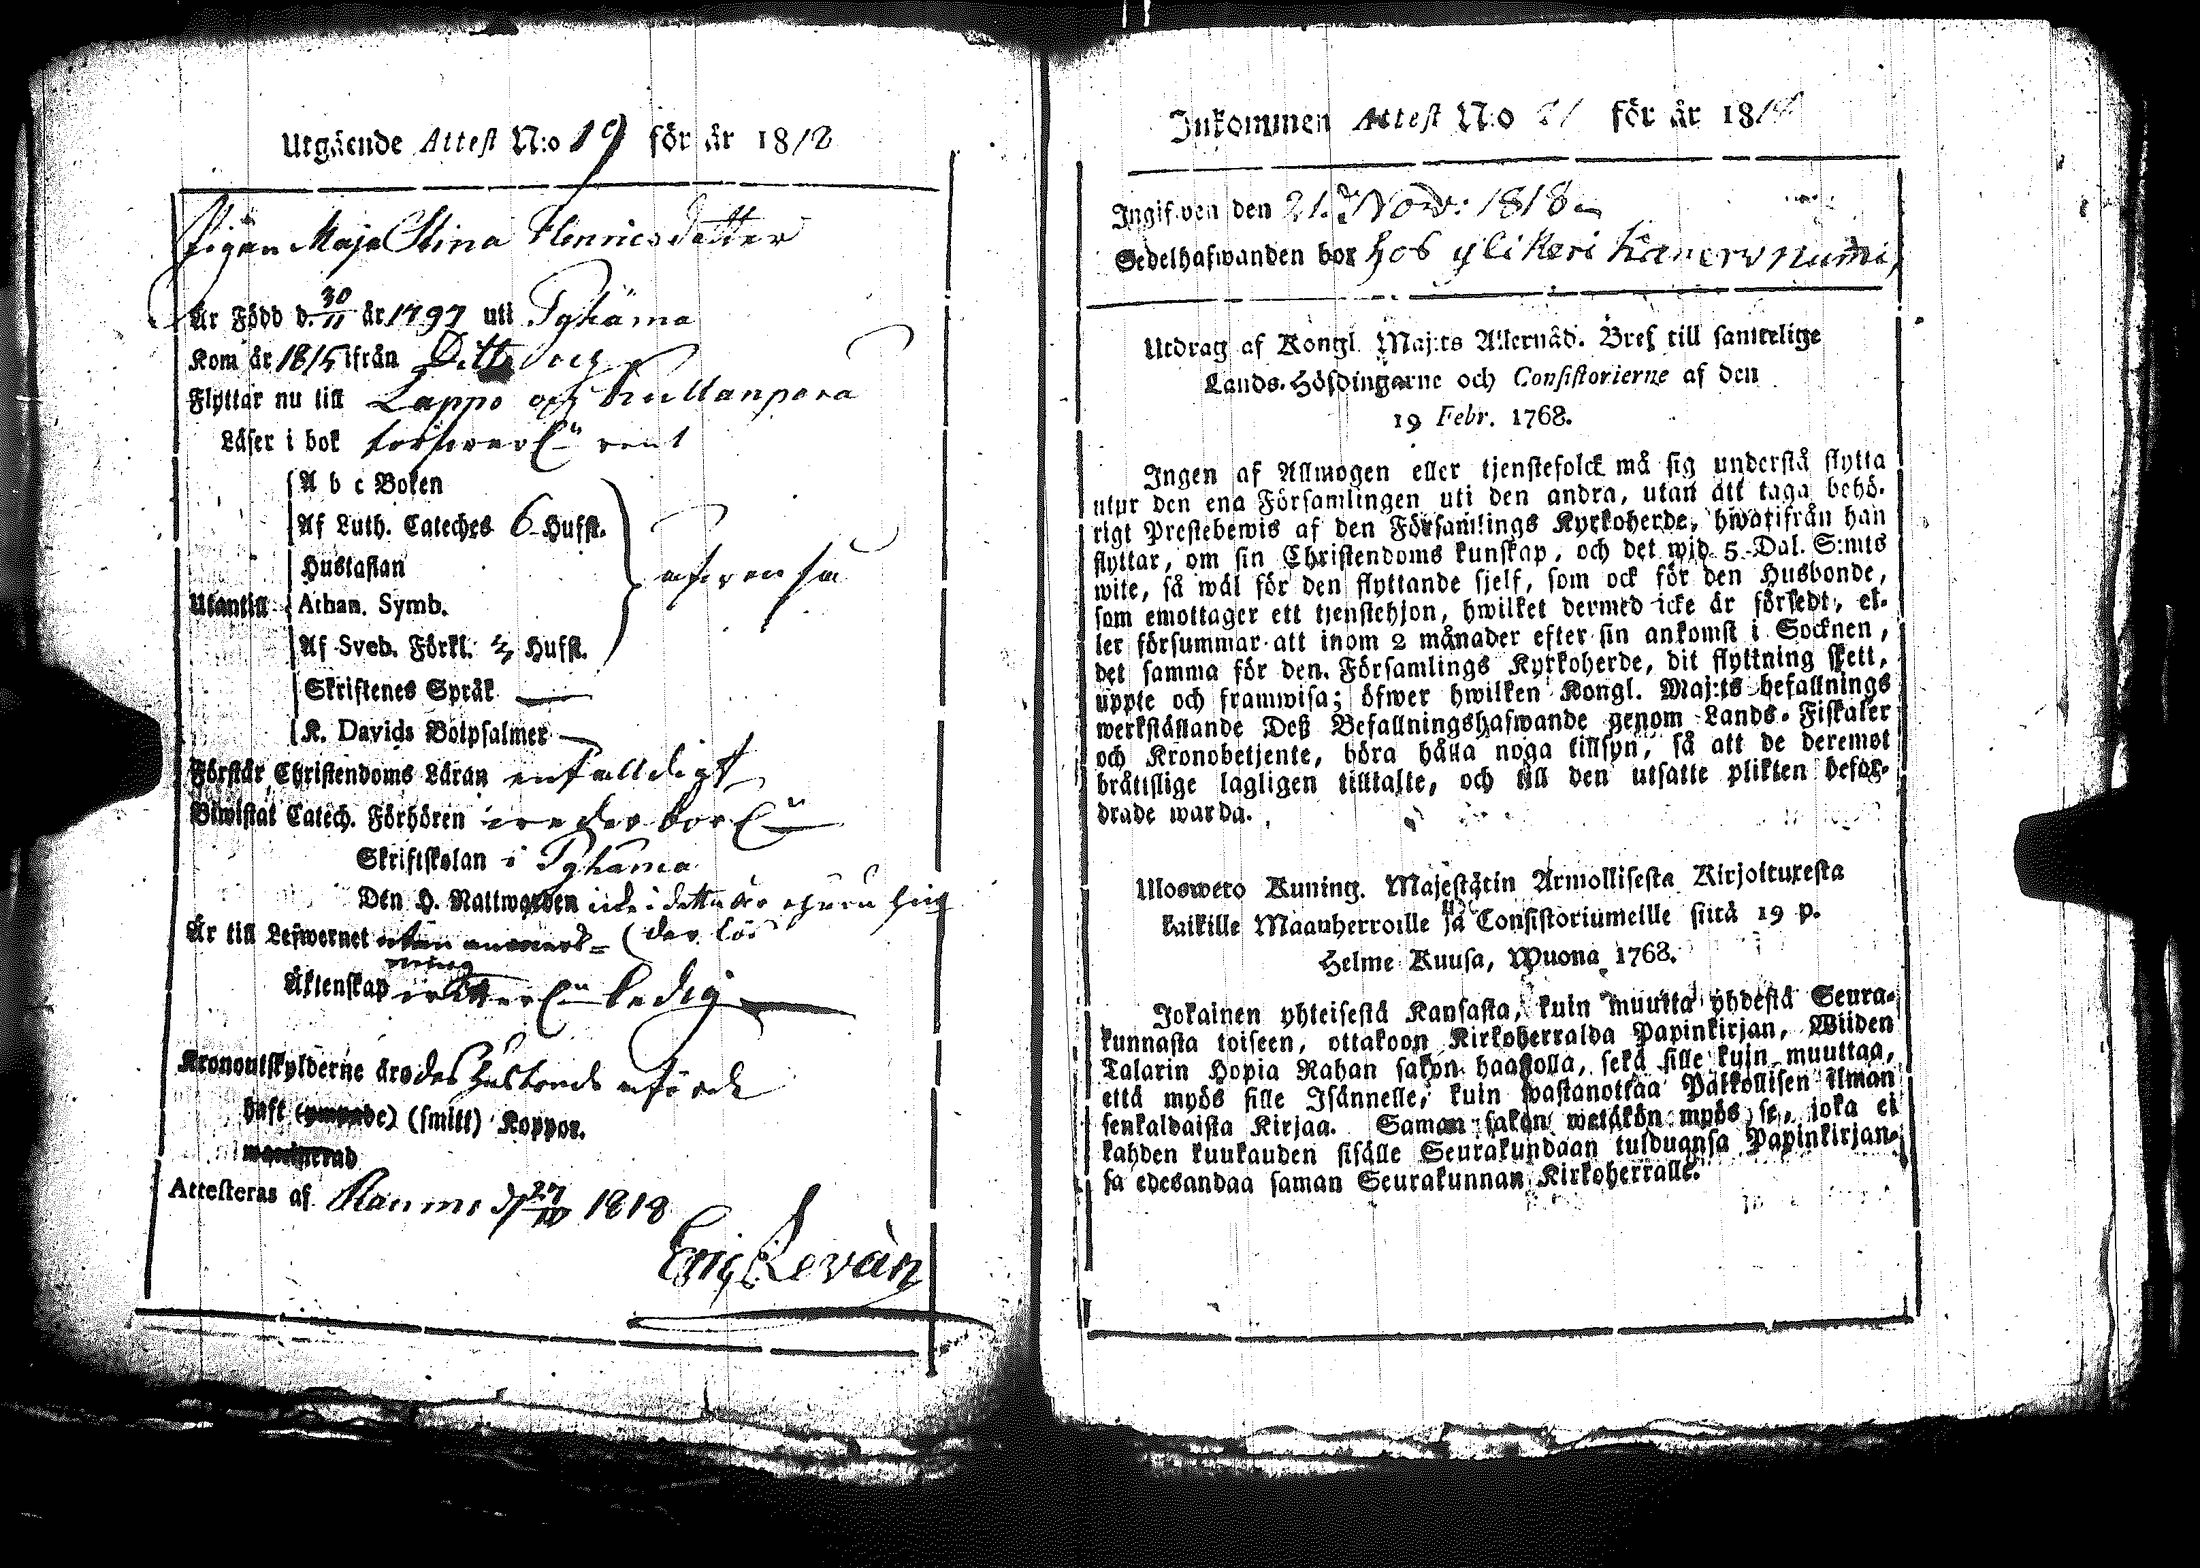 Utgående Attest N:o 19 för år 1818
Pigan Maja Stina Henricsdotter
Är Född d. 30/11 år 1797 uti Pyhäma
Kom år 1815 ifrån Ditto och
Flyttar nu till Lappo och Kullanpera
Läser i bok försvarl:n rent
A b c Boken
Af Luth. Cateches 6 Hufst.
Hustaflan
Utantill Athan. Symb.
Af Sveb. Förkl. Hufst.
Skriftenes Språk —
K. Davids Botpsalmer —
äfven så
Förstår Christendoms Läran enfalldigt
Biwistat Catech. Förhören
Skriftskolan i Pyhäma
Den H. Nattwarden icke i detta år
Är till Lefwernet
Äktenskap ledig
Kronoutskylderne äro des Husbonde
haft (smitt) Koppor.
Attesteras af Raumo d. 27/10 1818
Eric Levàn
Inkommen Attest N:o 21 för år 1818
Ingifven den 21. Nov: 1818
Sedelhafwanden bor hos yli Keri
Utdrag af Kongl. Maj:ts Allernåd. Bref till samtelige
Lands-Höfdingarne och Consistorierne af den
19 Febr. 1768.
Ingen af Allmogen eller tjenstefolck må sig understå flytta
utur den ena Församlingen uti den andra, utan att taga behö-
rigt Prestebewis af den Församlings Kyrkoherde, hwarifrån han
flyttar, om sin Christendoms kunskap, och det wid 5 Dal. S:mts
wite, så wäl för den flyttande sjelf, som ock för den Husbonde,
som emottager ett tjenstehjon, hwilket dermed icke är försedt, el-
ler försummar att inom 2 månader efter sin ankomst i Socknen,
det samma för den Församlings Kyrkoherde, dit flyttning skett,
uppte och framwisa; öfwer hwilken Kongl. Maj:ts befallnings
werkställande Deß Befallningshafwande genom Lands-Fiskaler
och Kronobetjente, böra hålla noga tillsyn, så att de deremot
bråttslige lagligen tilltalte, och till den utsatte plikten befor-
drade warda.
Uloswero Kuning. Majestätin Armollisesta Kirjoituxesta
kaikille Maanherroille ja Consistoriumeille siitä 19 p.
Helme Kuusa, Wuona 1768.
Jokainen yhteisestä Kansasta, kuin muutta yhdestä Seura-
kunnasta toiseen, ottakoon Kirkoherralda Papinkirjan, Wiiden
Talarin Hopia Rahan sakon haastolla, sekä sille kuin muuttaa,
että myös sille Isännelle, kuin wastanottaa Palkollisen ilman
senkaldaista Kirjaa. Saman sakon wetäkön myös se, joka ei
kahden kuukauden sisälle Seurakundaan tulduansa Papinkirjan-
sa edesandaa saman Seurakunnan Kirkoherralle.